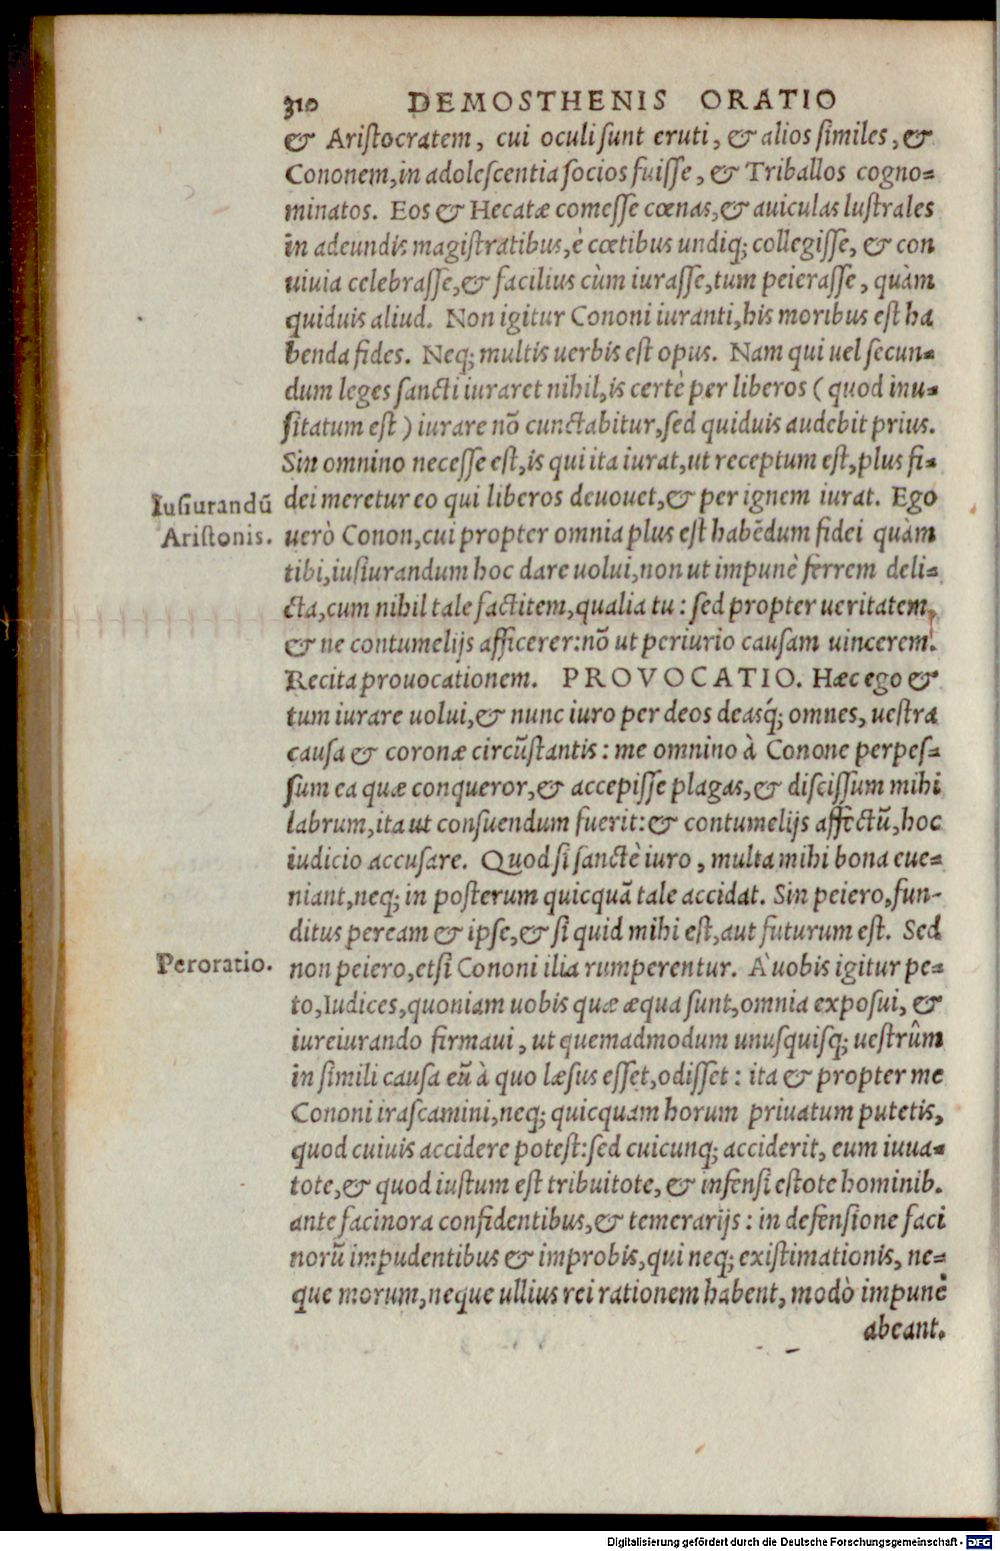 310 DEMOSTHENIS ORATIO
& Aristocratem, cui oculi sunt eruti, & alios similes, &
Cononem, in adolescentia socios fuisse, & Triballos cogno=
minatos. Eos & Hecatæ comesse cœnas, & auiculas lustrales
in adeundis magistratibus, è cœtibus undiq; collegisse, & con
uiuia celebrasse, & facilius cùm iurasse, tum peierasse, quàm
quiduis aliud. Non igitur Cononi iuranti, his moribus est ha
benda fides. Neq; multis uerbis est opus. Nam qui uel secun=
dum leges sancti iuraret nihil, is certè per liberos ( quod inu=
sitatum est ) iurare nõ cunctabitur, sed quiduis audebit prius.
Sin omnino necesse est, is qui ita iurat, ut receptum est, plus fi=
Iusiurandũ dei meretur eo qui liberos deuouet, & per ignem iurat. Ego
Aristonis. uerò Conon, cui propter omnia plus est habẽdum fidei quàm
tibi, iusiurandum hoc dare uolui, non ut impunè ferrem deli=
cta, cum nihil tale factitem, qualia tu : sed propter ueritatem,
& ne contumelijs afficerer: nõ ut periurio causam uincerem.
Recita prouocationem. PROVOCATIO. Hæc ego &
tum iurare uolui, & nunc iuro per deos deasq́; omnes, uestra
causa & coronæ circũstantis : me omnino à Conone perpes=
sum ea quæ conqueror, & accepisse plagas, & discissum mihi
labrum, ita ut consuendum fuerit: & contumelijs affectũ, hoc
iudicio accusare. Quod si sanctè iuro, multa mihi bona eue=
niant, neq; in posterum quicquã tale accidat. Sin peiero, fun-
ditus peream & ipse, & si quid mihi est, aut futurum est. Sed
Peroratio. non peiero, etsi Cononi ilia rumperentur. À uobis igitur pe=
to, Iudices, quoniam uobis quæ æqua sunt, omnia exposui, &
iureiurando firmaui, ut quemadmodum unusquisq; uestrûm
in simili causa eũ à quo læsus esset, odisset : ita & propter me
Cononi irascamini, neq; quicquam horum priuatum putetis,
quod cuiuis accidere potest: sed cuicunq; acciderit, eum iuua=
tote, & quod iustum est tribuitote, & infensi estote hominib.
ante facinora confidentibus, & temerarijs : in defensione faci
norũ impudentibus & improbis, qui neq; existimationis, ne=
que morum, neque ullius rei rationem habent, modò impunè
abeant.
Digitalisierung gefördert durch die Deutsche Forschungsgemeinschaft - DFG